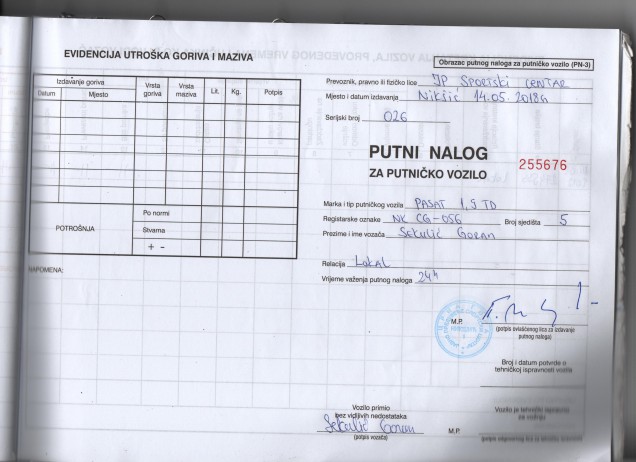 EVIDENCIJA UTROŠKA GORIVA I MAZIVA
Izdavanje goriva
Datum
Mjesto
Vrsta goriva
Vrsta maziva
Lit.
Kg.
Potpis
POTROŠNJA
Po normi
Stvarna
+ -
NAPOMENA:
Obrazac putnog naloga za putničko vozilo (PN-3)
Prevoznik, pravno ili fizičko lice JP SPORTSKI CENTAR
Mjesto i datum izdavanja Nikšić 14.05.2018G
Serijski broj 026
PUTNI NALOG
ZA PUTNIČKO VOZILO
255676
Marka i tip putničkog vozila PASAT 1,9 TD
Registarske oznake NK CG-056 Broj sjedišta 5
Prezime i ime vozača Sekulić Goran
Relacija Lokal
Vrijeme važenja putnog naloga 24h
M.P.
(potpis ovlašćenog lica za izdavanje
putnog naloga)
Broj i datum potvrde o
tehničkoj ispravnosti vozila
Vozilo primio
bez vidljivih nedostataka
Sekulić Goran
(potpis vozača)
M.P.
Vozilo je tehnički ispravno
za vožnju